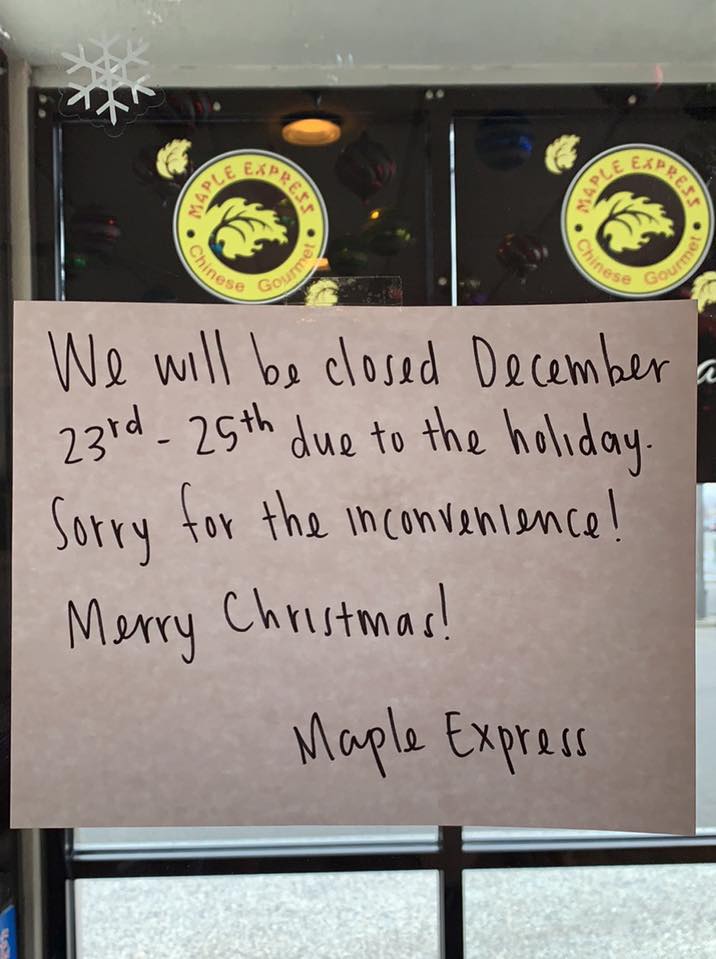 MAPLE EXPRESS
Chinese Gourmet
MAPLE EXPRESS
Chinese Gourmet
We will be closed December
23rd - 25th due to the holiday.
Sorry for the inconvenience!
Merry Christmas!
Maple Express